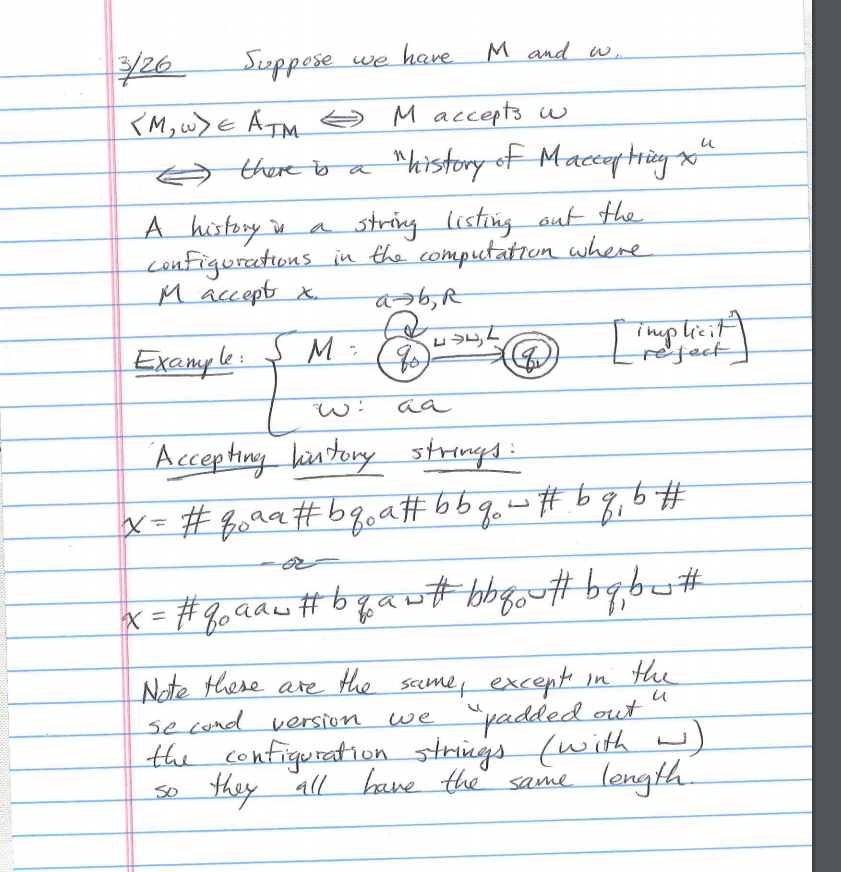 3/26 Suppose we have M and w.
<M,w> ∈ ATM ⟺ M accepts w
⟺ there is a "history of M accepting x"
A history is a string listing out the
configurations in the computation where
M accepts x.
a→b, R
Example: { M: q₀ ⊔→⊔, L q₁ [implicit
reject]
w: aa
Accepting history strings:
x = # q₀aa # bq₀a # bbq₀⊔ # bq₁b #
- or -
x = # q₀aa⊔ # bq₀a⊔ # bbq₀⊔ # bq₁b⊔ #
Note these are the same, except in the
second version we "padded out"
the configuration strings (with ⊔)
so they all have the same length.